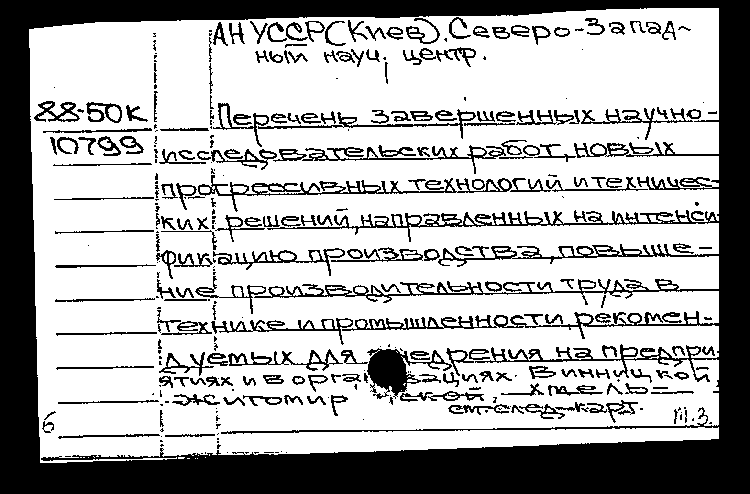 АН УССР (Киев). Северо-Запад-
ный науч. центр.
88-50К
10799
Перечень завершенных научно-
исследовательских работ, новых
прогрессивных технологий и техничес-
ких решений, направленных на интенси
фикацию производства, повыше-
ние производительности труда в
технике и промышленности, рекомен-
дуемых для внедрения на предпри
ятиях и в организациях Винницкой,
Житомирской, Хмель-
см. след. карт.
б
т.з.